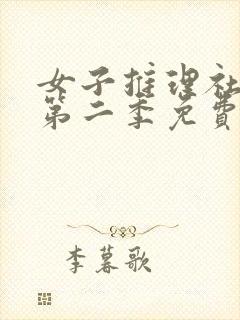 女子推理社
第二季免費
李暮歌